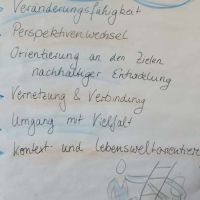 Veränderungsfähigkeit
Perspektivenwechsel
Orientierung an den Zielen
nachhaltiger Entwicklung
Vernetzung & Verbindung
Umgang mit Vielfalt
Kontext- und Lebensweltorientier